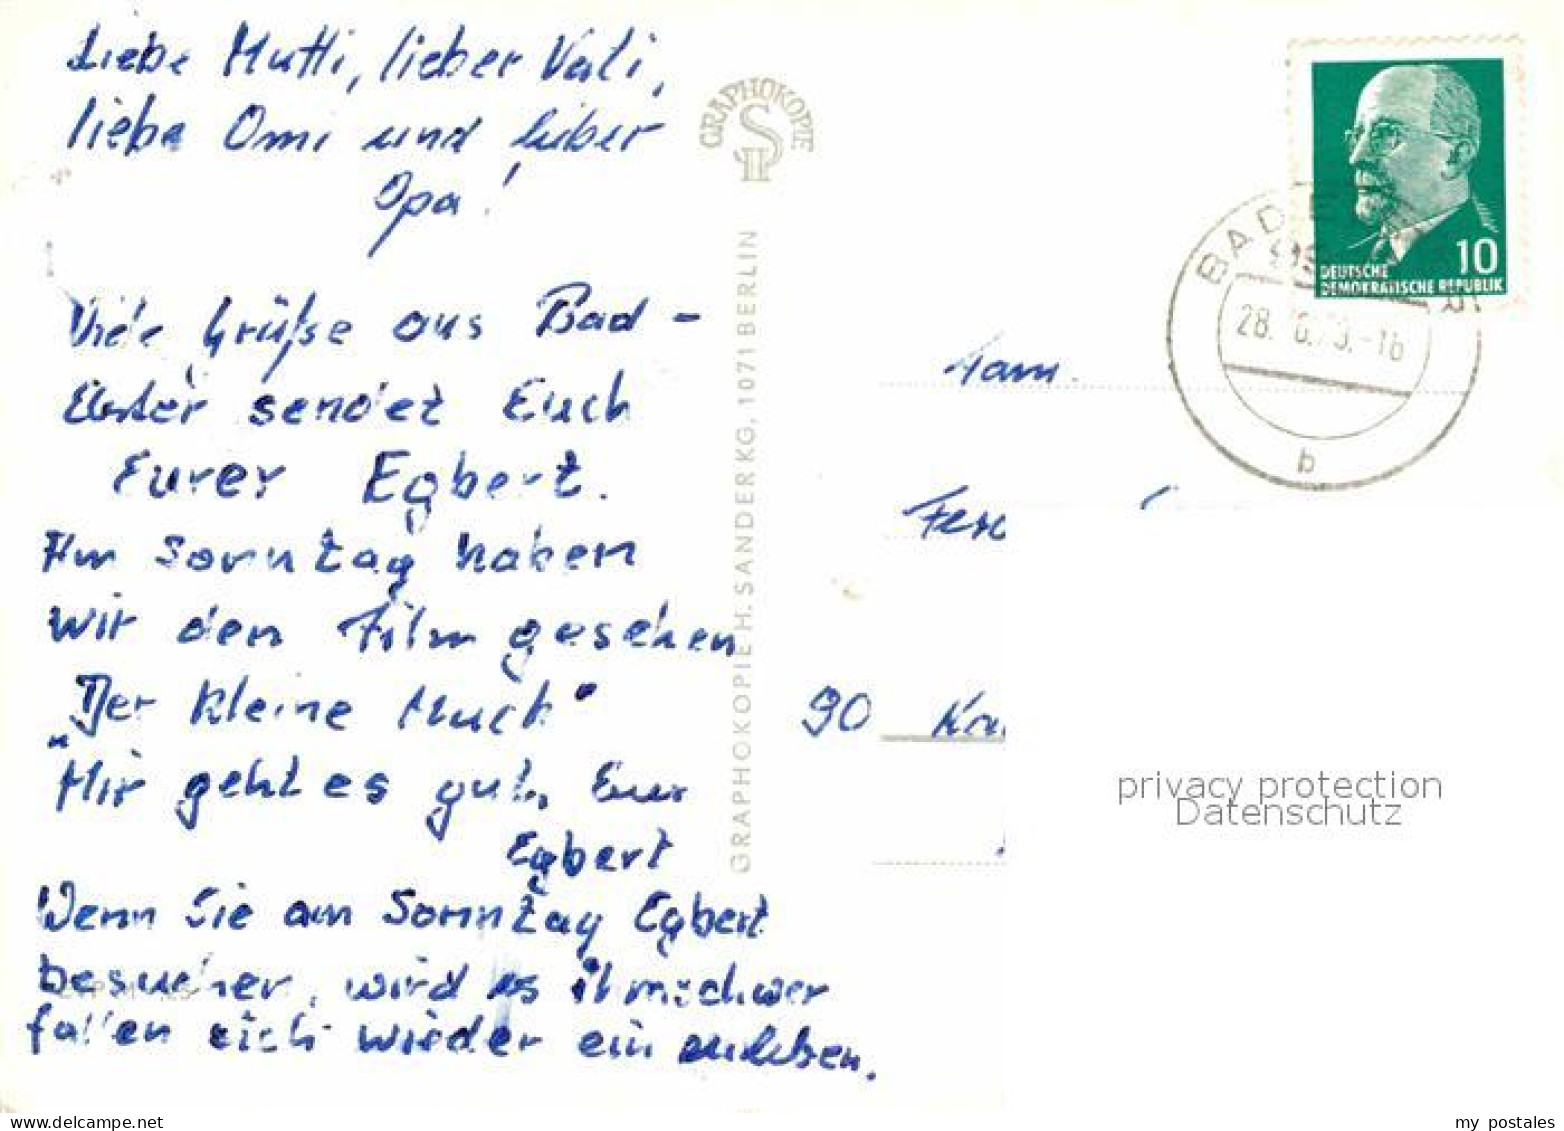 Liebe Mutti, lieber Vati,
liebe Omi und lieber
Opa!
Viele Grüße aus Bad-
Elster sendet Euch
Eurer Egbert.
Am Sonntag haben
wir den Film gesehen
„Der kleine Muck“
Mir geht es gut, Euer
Egbert
Wenn Sie am Sonntag Egbert
besuchen, wird es ihm schwer
fallen sich wieder ein zuleben.
GRAPHOKOPIE
H S
GRAPHOKOPIE H. SANDER KG, 1071 BERLIN
10
DEUTSCHE
DEMOKRATISCHE REPUBLIK
BAD
28.
-16
b
Fam.
90
privacy protection
Datenschutz
my postales